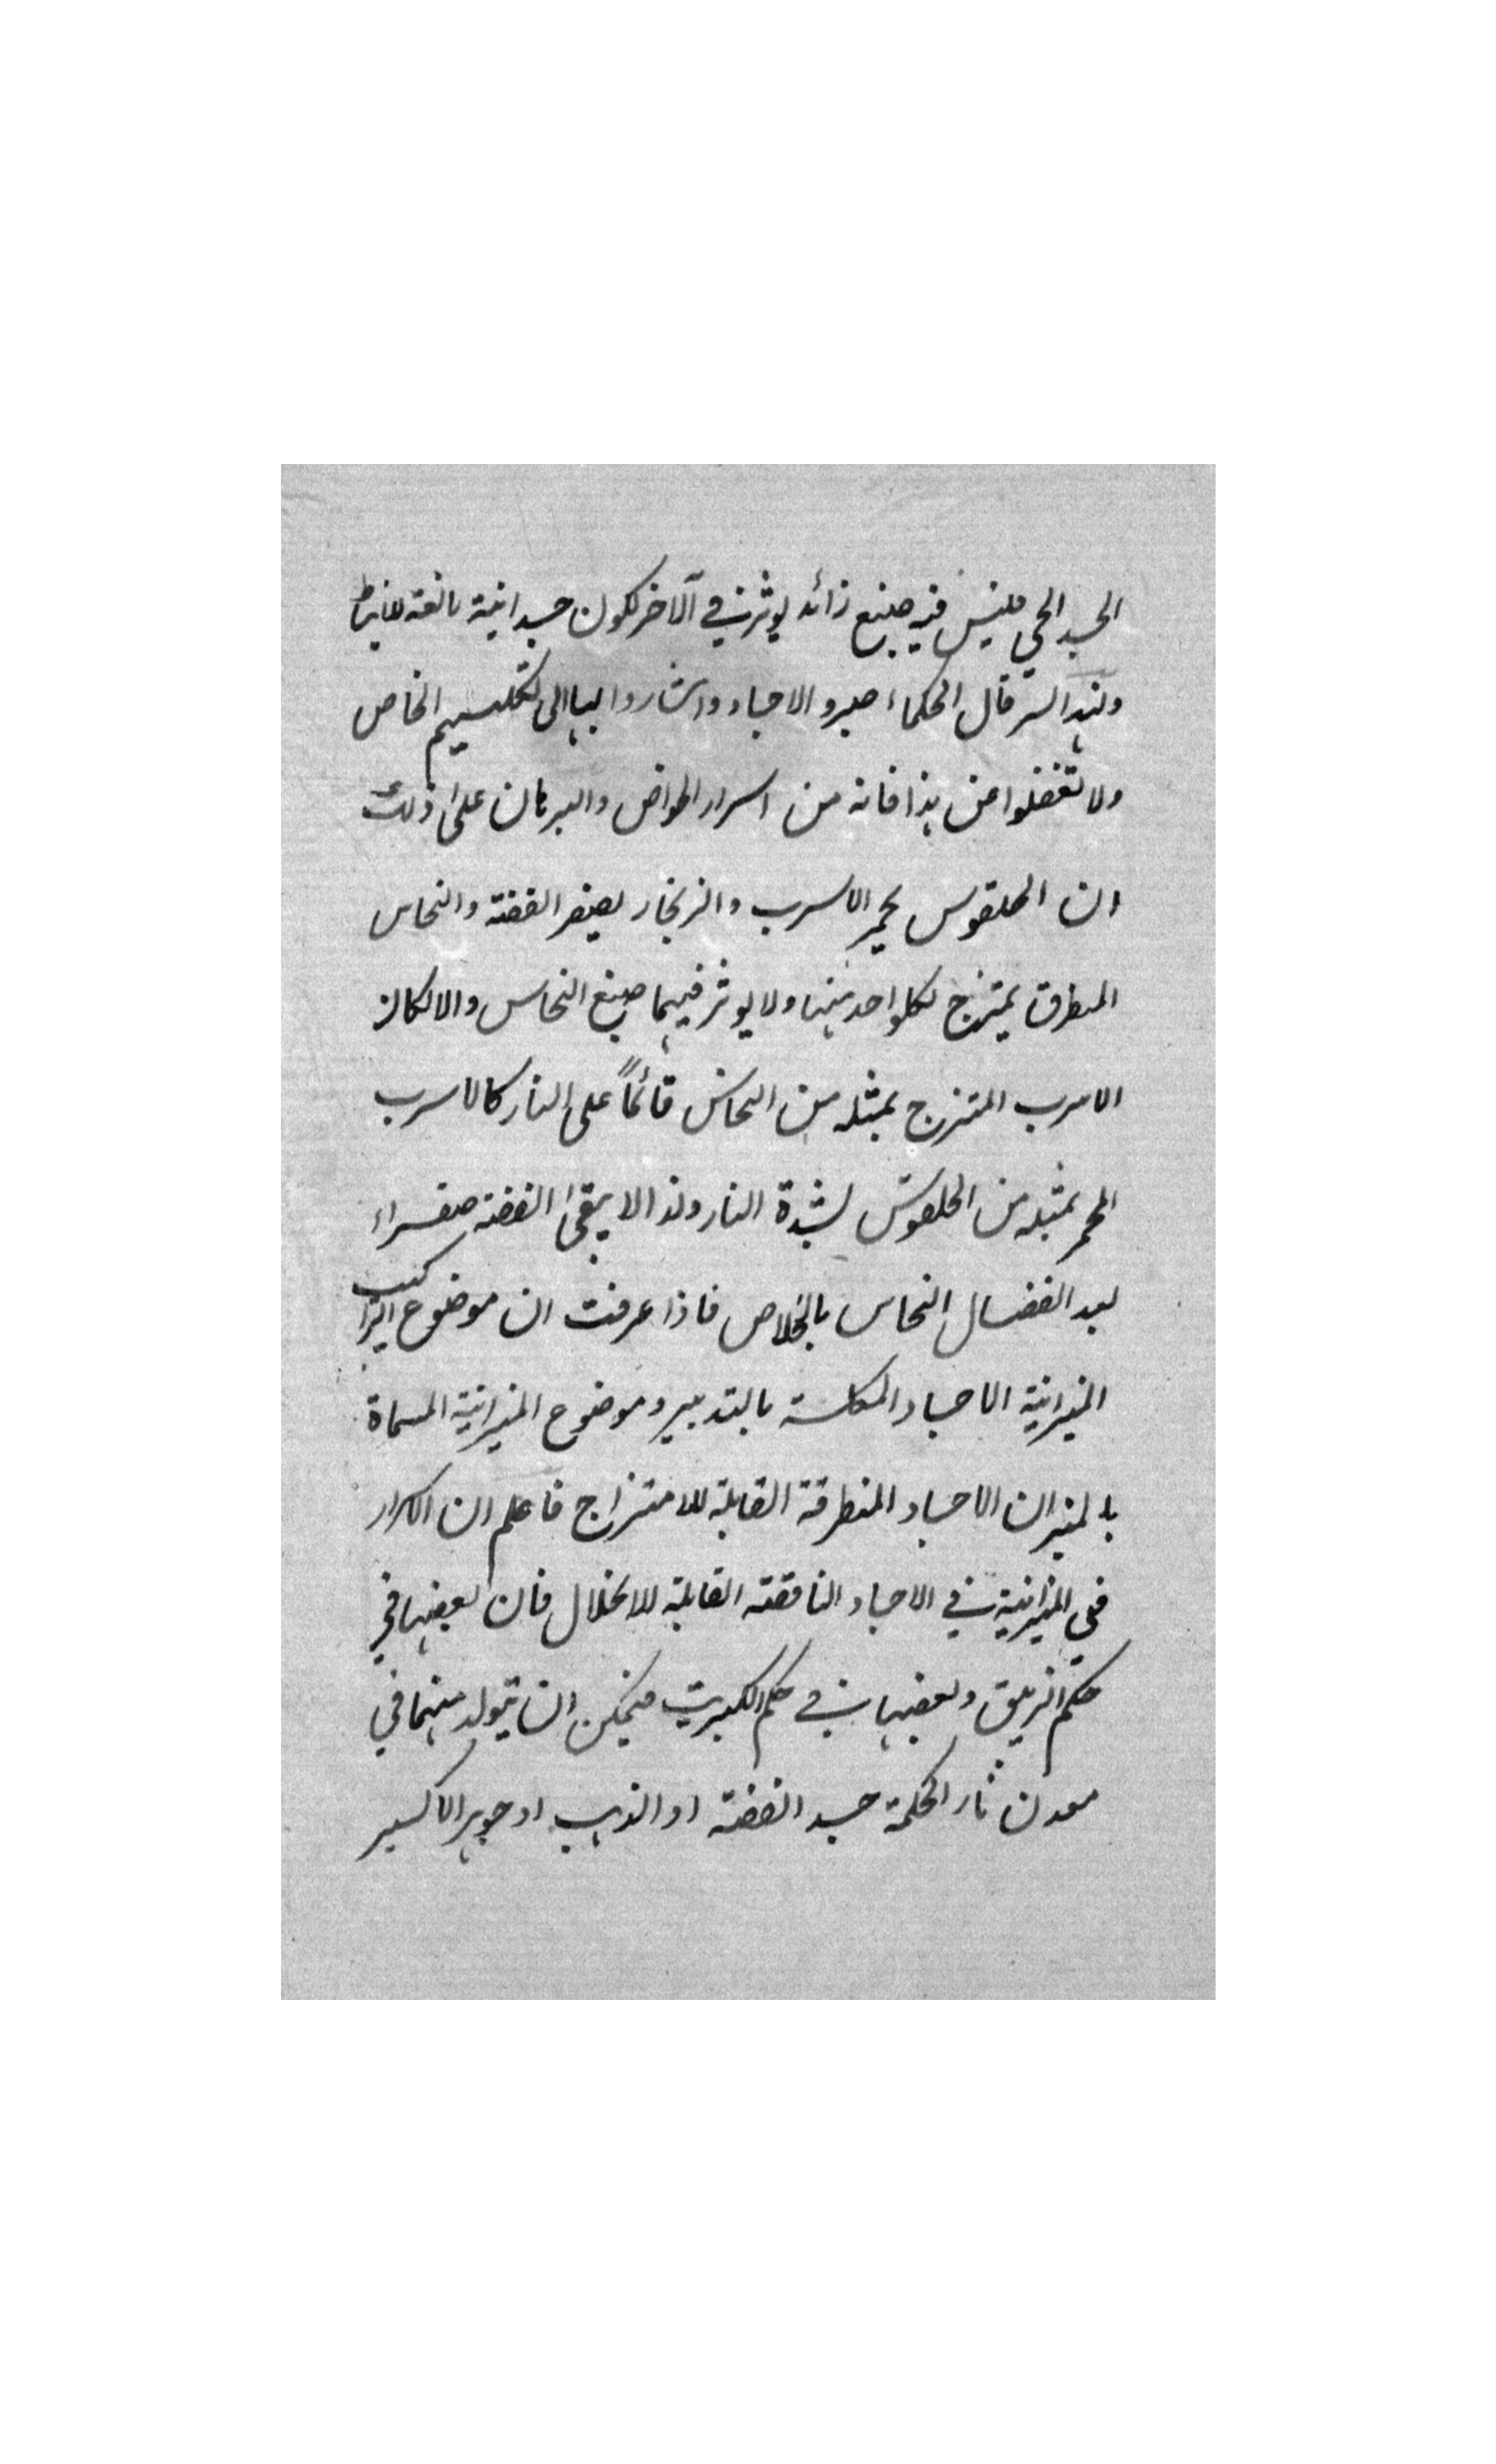 الجسد الحي فليس فيه صبغ زائد يوثر في الآخر لكون جسدانية مانعة
ولهذا السر قال الحكماء صيروا الاجساد واشاروا بها الى تكليسهم الخاص
ولا تغفلوا عن هذا فانه من اسرار الخواص والبرهان على ذلك
ان الحلقوس يحمر الاسرب والزنجار يصفر الفضة والنحاس
المنطرق يمتزج لكلواحد منهما ولا يوثر فيهما صبغ النحاس والا لكان
الاسرب الممتزج بمثله من النحاس قائماً على النار كالاسرب
المحمر بمثله من الحلقوس لشدة النار ولذا لا يبقى الفضة صفراء
بعد انفصال النحاس بالخلاص فاذا عرفت ان موضوع التراكيب
الميزانية الاجساد المكلسة بالتدبير وموضوع الميزانية المسماة
بالميزان الاجساد المنطرقة القابلة للامتزاج فاعلم ان الاسرار
في الميزانية في الاجساد الناقصة القابلة للانحلال فان بعضها في
حكم الزيبق وبعضها في حكم الكبريت فيمكن ان يتولد منهما في
معدن نار الحكمة جسد الفضة او الذهب او جوهر الاكسير